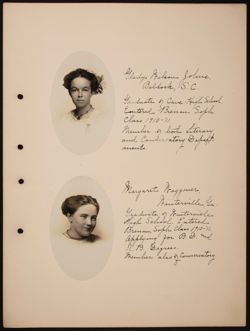 Gladys Wilson Johns,
S.C.
Graduate of Cave High School
Entered Brenau Soph
Class 1910-11
Member of both Literary
and Conservatory Depart-
ments.
Margarete Waggoner,
Winterville, Ga.
Graduate of Winterville
High School. Entered
Brenau Soph Class 1910-11
Applying for B.O. and
A.B. Degrees.
Member also of Conservatory